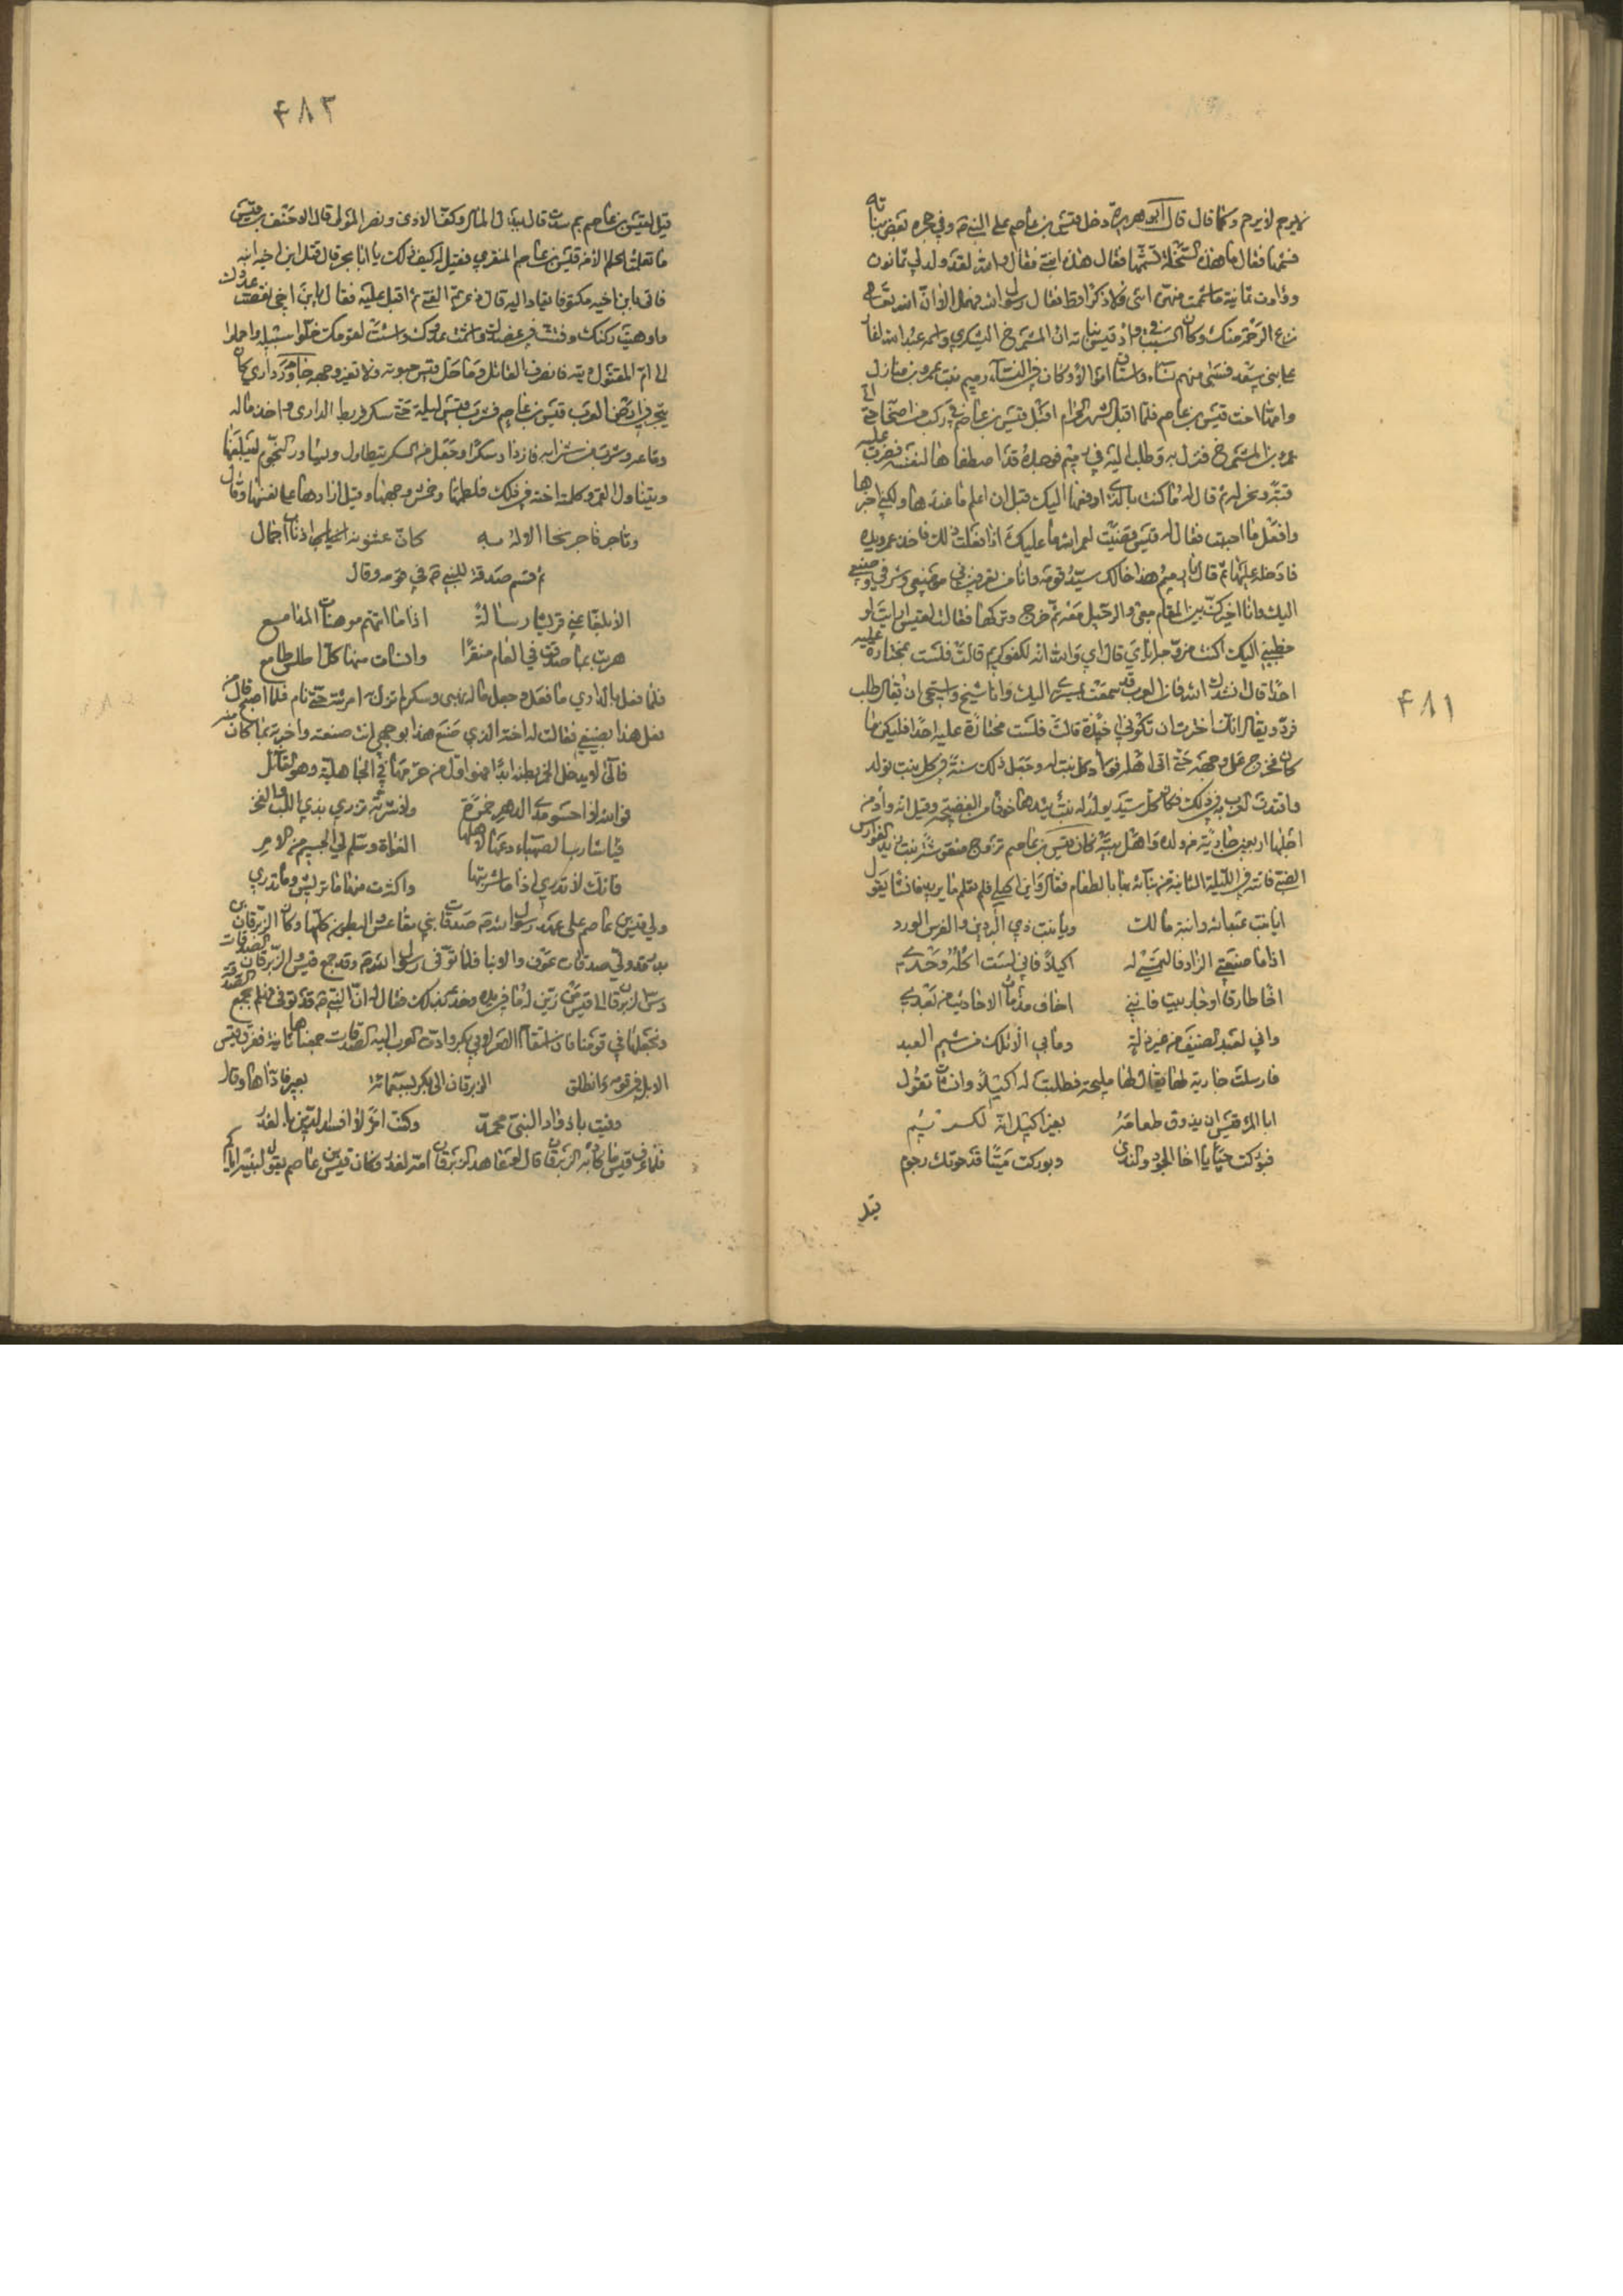 لا يرحم لا يرحم وكما قال قال ابو هريرة دخل قيس بن عاصم على النبي وفي حجره بعض بناته
فشمها فقال ما هذه السخلة تشمها فقال هذه ابنتي فقال والله لقد ولد لي بنون
ووأدت ثمانية ما شممت منهن انثى ولا ذكرا قط فقال رسول الله فهل الا ان الله تعالى
نزع الرحمة منك وكان السبب في وأد قيس بناته ان المشمرخ اليشكري واسمه عبد الله اغار
على بني سعد فسبى منهم نساء واستاق اموالا وكان في النساء رميم بنت عمرو بن
وامها اخت قيس بن عاصم فلما اقبل الشهر الحرام اقبل قيس بن عاصم في ركب من اصحابه حتى اتى
عمرو بن المشمرخ فنزل به وطلب اليه في رميم فوجده قد اصطفاها لنفسه فضرب عليه
قبة ونحر له ثم قال له ما كنت بالذي ادفعها اليك قبل ان اعلم ما عندها ولكني اخبرها
وافعل ما احببت فقال له قيس قضيت لعمر الله ما عليك اذا فعلت ذلك فاخذ عمرو بيده
فادخله عليها ثم قال يا رميم هذا خالك سيد قومه وانا من تعرفين في موضعي وشرفي وصنيعي
اليك وانا اخيرك بين المقام معي والرحيل معه ثم خرج وتركها فقالت لقيس
خطبني اليك اكنت مزوجه اياي قال اي والله انه لكفو كريم قالت فلست بمختارة عليه
احدا قال انشدك الله فان العرب قد سمعت بمسيري اليك وانا شيخ واستحي ان يقال طلب
فرد ويقال انك اخترت ان تكوني اخيذة قالت فلست مختارة عليه احدا فليكن ما
كان فخرج على وجهه حتى اتى اهله فوأد كل بنت له وجعل ذلك سنة في كل بنت تولد
واقتدت العرب به في ذلك فكان كل سيد يولد له بنت يئدها خوفا من الفضيحة وقيل انه وأد من
اجلها اربعين جارية من ولده واهل بيته وكان قيس بن عاصم تزوج منفوسة بنت زيد الفوارس
الضبي فاتته في الليلة الثانية من بنائه بها بالطعام فقال واين اكيلي فلم تعلم ما يريد فانشأ يقول
ايا بنت عبد الله وابنة مالك ويا بنت ذي البردين والفرس الورد
اذا ما صنعت الزاد فالتمسي له اكيلا فاني لست آكله وحدي
اخا طارقا او جار بيت فانني اخاف مذمات الاحاديث من بعدي
واني لعبد الضيف من غير ذلة وما بي الا تلك من شيم العبد
فارسلت جارية لها يقال لها مليحة فطلبت له اكيلا وانشأت تقول
ابا المرء قيس ان يذوق طعامه بغير اكيل انه لكريم
فبوركت حيا يا اخا الجود والندى وبوركت ميتا قد حوتك رجوم
قيل
٤٨١
٤٨٢
قيل لقيس بن عاصم بم سدت قال ببذل المال وكف الاذى ونصر المولى قال الاحنف بن قيس
ما تعلمت الحلم الا من قيس بن عاصم المنقري فقيل له كيف ذلك يا ابا بحر قال قتل ابن اخيه ابنه
فاتي بابن اخيه مكتوفا يقاد اليه قال ذعرتم الفتى ثم اقبل عليه فقال يا بن اخي نقصت عددك
واوهيت ركنك وفتتت في عضدك واشمت عدوك واسأت لقومك خلوا سبيله واحملوا
الى ام المقتول ديته فانصرف القاتل وما حل قيس حبوته ولا تغير وجهه داري كان
يتجر في ارض العرب قيس بن عاصم فشرب قيس ليلة حتى سكر فربط الداري واخذ ماله
وشرب من شرابه فازداد سكرا وجعل من السكر يتطاول ويساور النجوم ليبلغها
ويتناول القمر وكلمته اخته في ذلك فلطمها وخمش وجهها وقيل ارادها على نفسها وقال
وتاجر فاجر جاء الاله به كان عثنونه اذناب اجمال
ثم قسم صدقة للنبي في قومه وقال
الا بلغا عني قريشا رسالة اذا ما اتتهم
حبوت بما صدقت في العام منقرا وايأست منها كل اطلس طامع
فلما فعل بالداري ما فعله وجعل ماله نهبى وسكر حتى نام فلما اصبح قال من
فعل هذا بضيفي فقالت له اخته الذي صنع هذا بوجهي انت صنعته واخبرته بما كان منه
فآلى لا يدخل الخمر بطنه ابدا فهو اول من حرمها في الجاهلية وهو القائل
فوالله لا احسو مدى الدهر خمرة ولا شربة تزري بذي اللب والفخر
فيا شارب الصهباء دعها لاهلها الغواة وسلم للجسيم من الامر
فانك لا تدري اذا ما شربتها واكثرت منها ما تريش وما تبري
ولي قيس بن عاصم على عهد رسول الله صدقات بني مقاعس والبطون كلها وكان الزبرقان بن
بدر قد ولي صدقات عوف والابناء فلما توفي رسول الله وقد جمع قيس والزبرقان الصدقات
دس الزبرقان الى قيس من زين له ما في يده وخدعه بذلك فقال له ان النبي قد توفي فهلم نجمع الصدقة
ونجعلها في قومنا فان استقام الامر لابي بكر وادت العرب اليه الصدقات جمعناها ثانية ففرق قيس
الابل في قومه وانطلق الزبرقان الى ابي بكر بسبعمائة بعير فاداها وقال
وفيت باذواد النبي محمد وكنت امرأ لا افسد الدين بالغدر
فلما عرف قيس ما كاده به الزبرقان قال لو عاهد الزبرقان امه لغدر وكان قيس بن عاصم يقول لبنيه اياكم